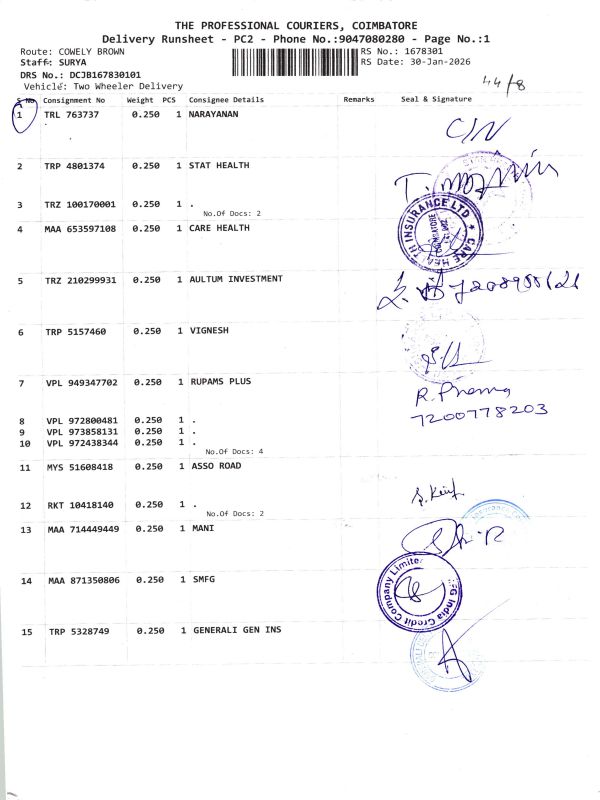 THE PROFESSIONAL COURIERS, COIMBATORE
Delivery Runsheet - PC2 - Phone No.:9047080280 - Page No.:1
Route: COWELY BROWN
RS No.: 1678301
Staff: SURYA
RS Date: 30-Jan-2026
DRS No.: DCJB167830101
Vehicle: Two Wheeler Delivery
44/8
S No Consignment No Weight PCS Consignee Details Remarks Seal & Signature
1 TRL 763737 0.250 1 NARAYANAN
C/N
2 TRP 4801374 0.250 1 STAT HEALTH
3 TRZ 100170001 0.250 1 .
No.Of Docs: 2
4 MAA 653597108 0.250 1 CARE HEALTH
CARE HEALTH INSURANCE LTD
5 TRZ 210299931 0.250 1 AULTUM INVESTMENT
6 TRP 5157460 0.250 1 VIGNESH
7 VPL 949347702 0.250 1 RUPAMS PLUS
R. Prema
7200778203
8 VPL 972800481 0.250 1 .
9 VPL 973858131 0.250 1 .
10 VPL 972438344 0.250 1 .
No.Of Docs: 4
11 MYS 51608418 0.250 1 ASSO ROAD
12 RKT 10418140 0.250 1 .
No.Of Docs: 2
13 MAA 714449449 0.250 1 MANI
14 MAA 871350806 0.250 1 SMFG
India Credit Company Limited
15 TRP 5328749 0.250 1 GENERALI GEN INS